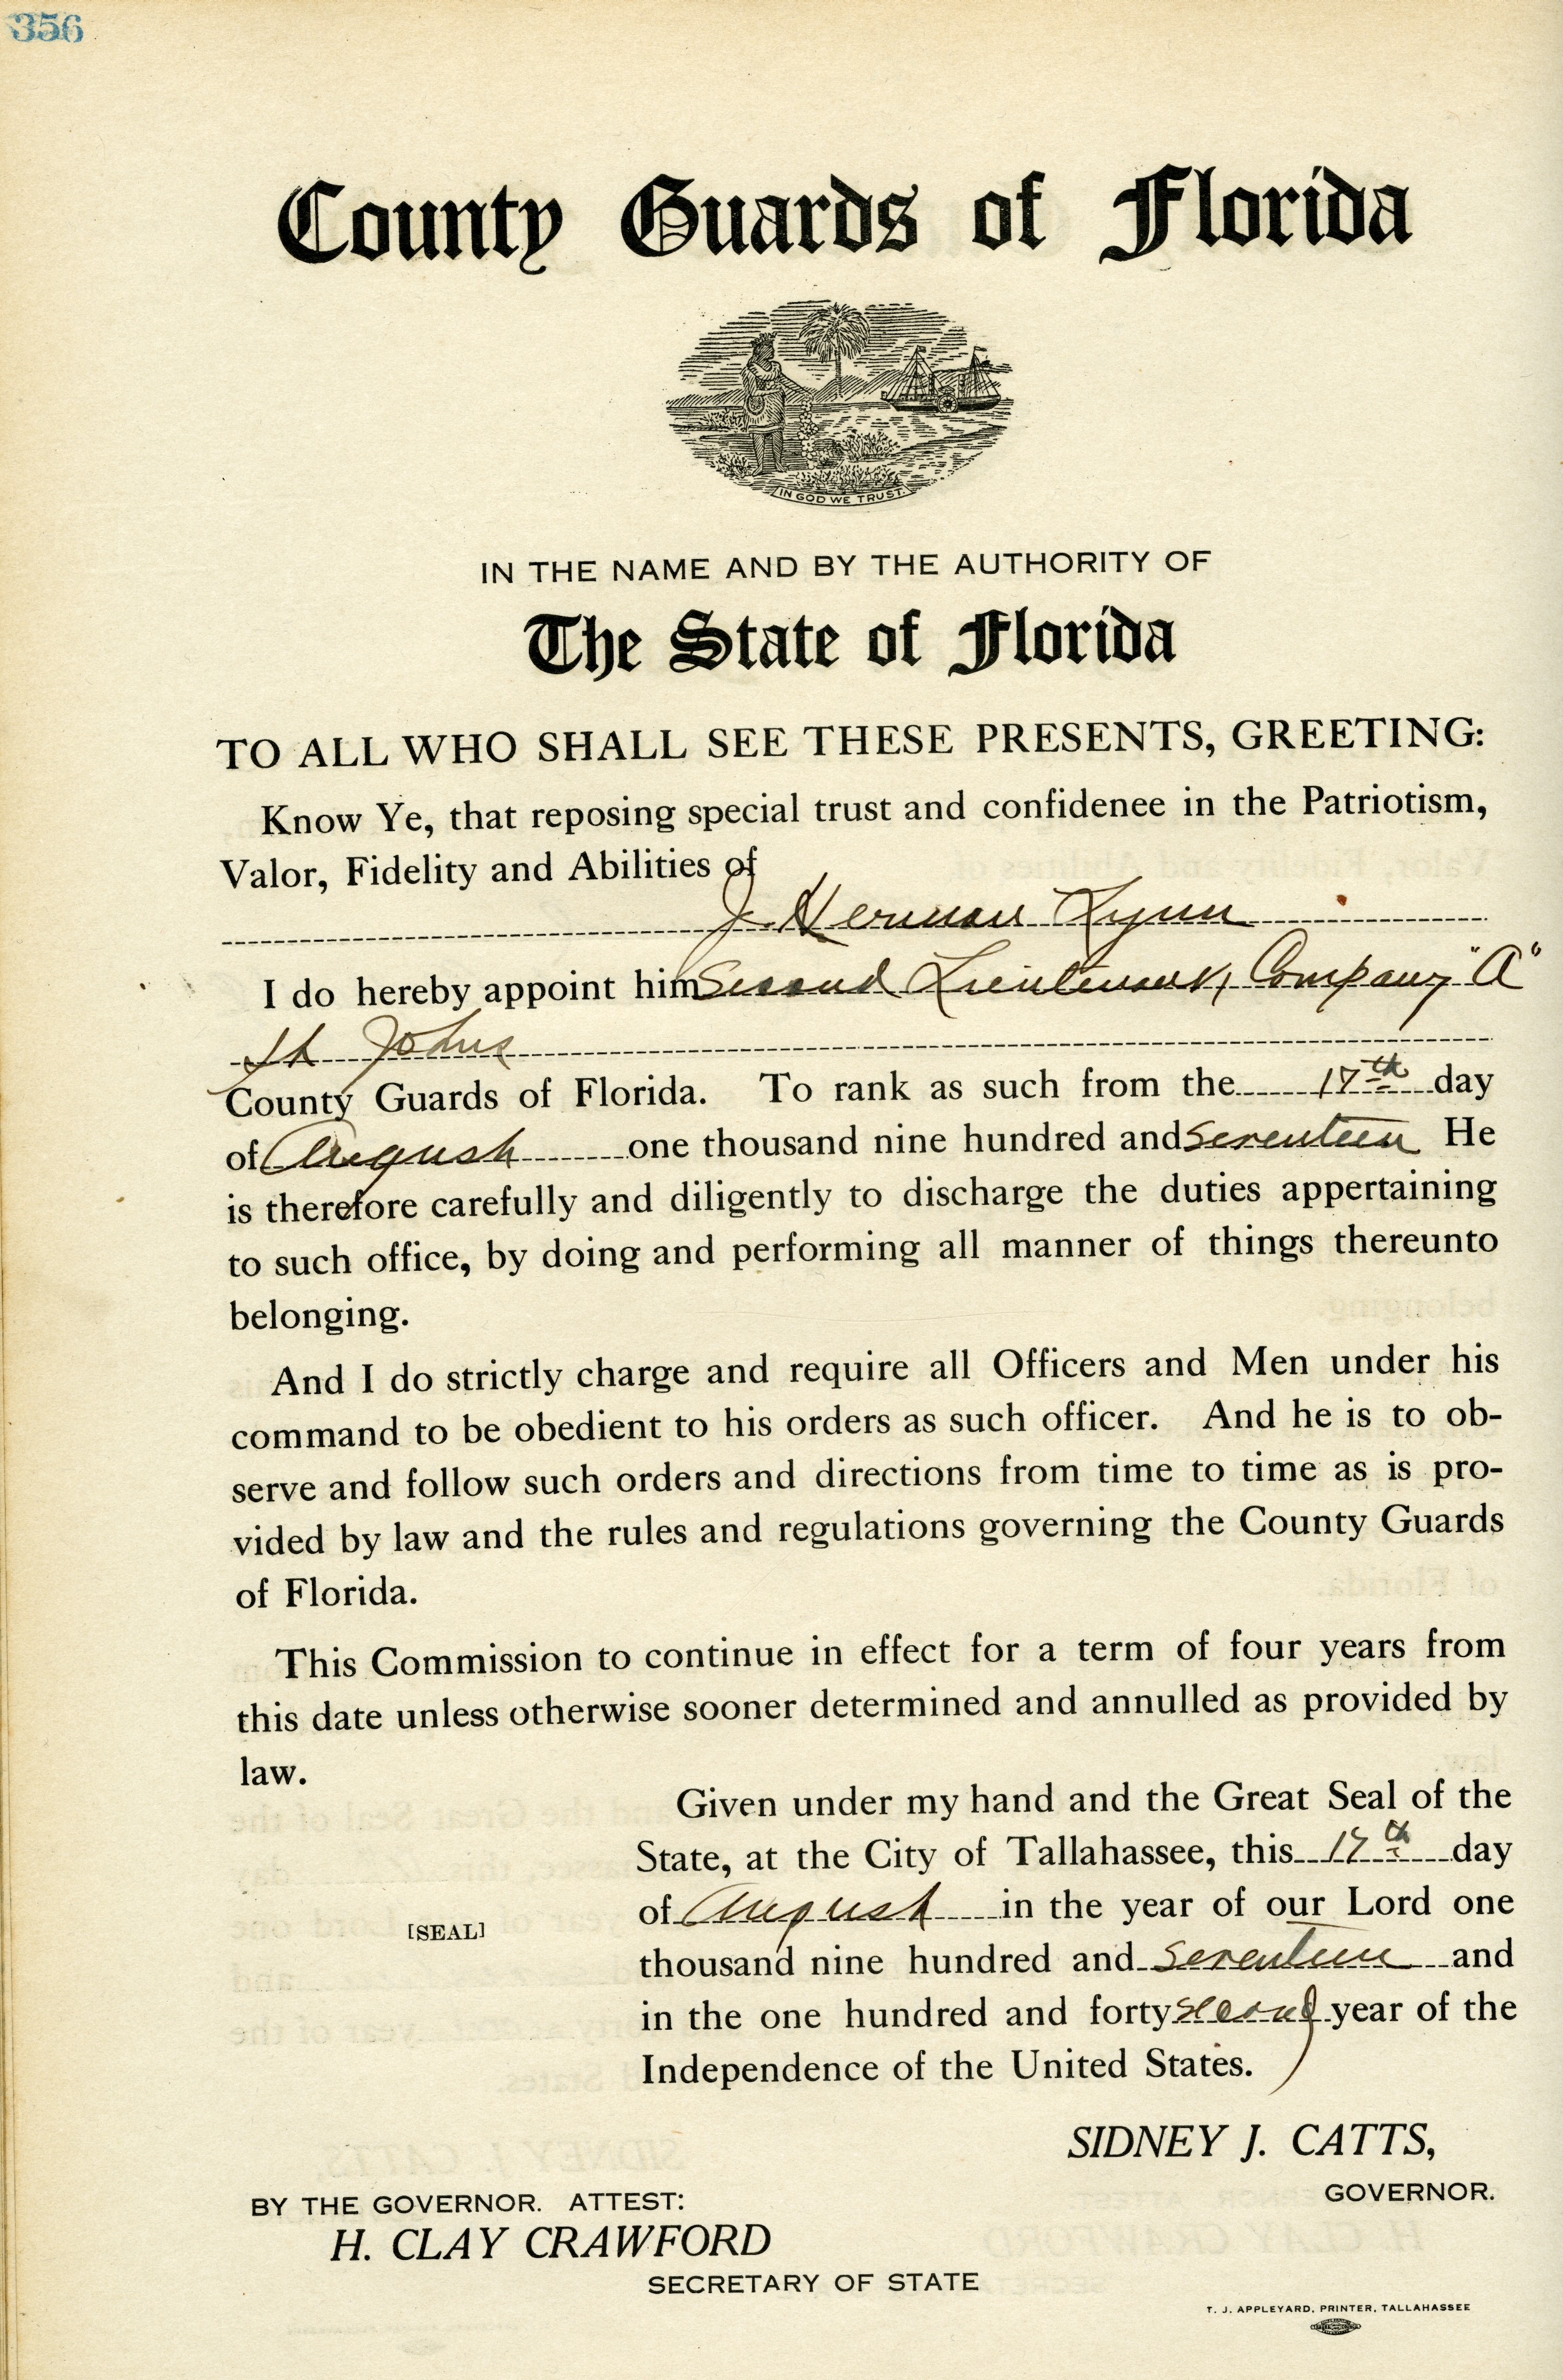 356
County Guards of Florida
IN GOD WE TRUST.
IN THE NAME AND BY THE AUTHORITY OF
The State of Florida
TO ALL WHO SHALL SEE THESE PRESENTS, GREETING:
Know Ye, that reposing special trust and confidenee in the Patriotism,
Valor, Fidelity and Abilities of
J. Herman Lynn
I do hereby appoint him Second Lieutenant, Company "A"
St Johns
County Guards of Florida. To rank as such from the 17th day
of August one thousand nine hundred and seventeen He
is therefore carefully and diligently to discharge the duties appertaining
to such office, by doing and performing all manner of things thereunto
belonging.
And I do strictly charge and require all Officers and Men under his
command to be obedient to his orders as such officer. And he is to ob-
serve and follow such orders and directions from time to time as is pro-
vided by law and the rules and regulations governing the County Guards
of Florida.
This Commission to continue in effect for a term of four years from
this date unless otherwise sooner determined and annulled as provided by
law.
Given under my hand and the Great Seal of the
State, at the City of Tallahassee, this 17th day
of August in the year of our Lord one
[SEAL]
thousand nine hundred and seventeen and
in the one hundred and forty second year of the
Independence of the United States.
SIDNEY J. CATTS,
GOVERNOR.
BY THE GOVERNOR. ATTEST:
H. CLAY CRAWFORD
SECRETARY OF STATE
T. J. APPLEYARD, PRINTER, TALLAHASSEE